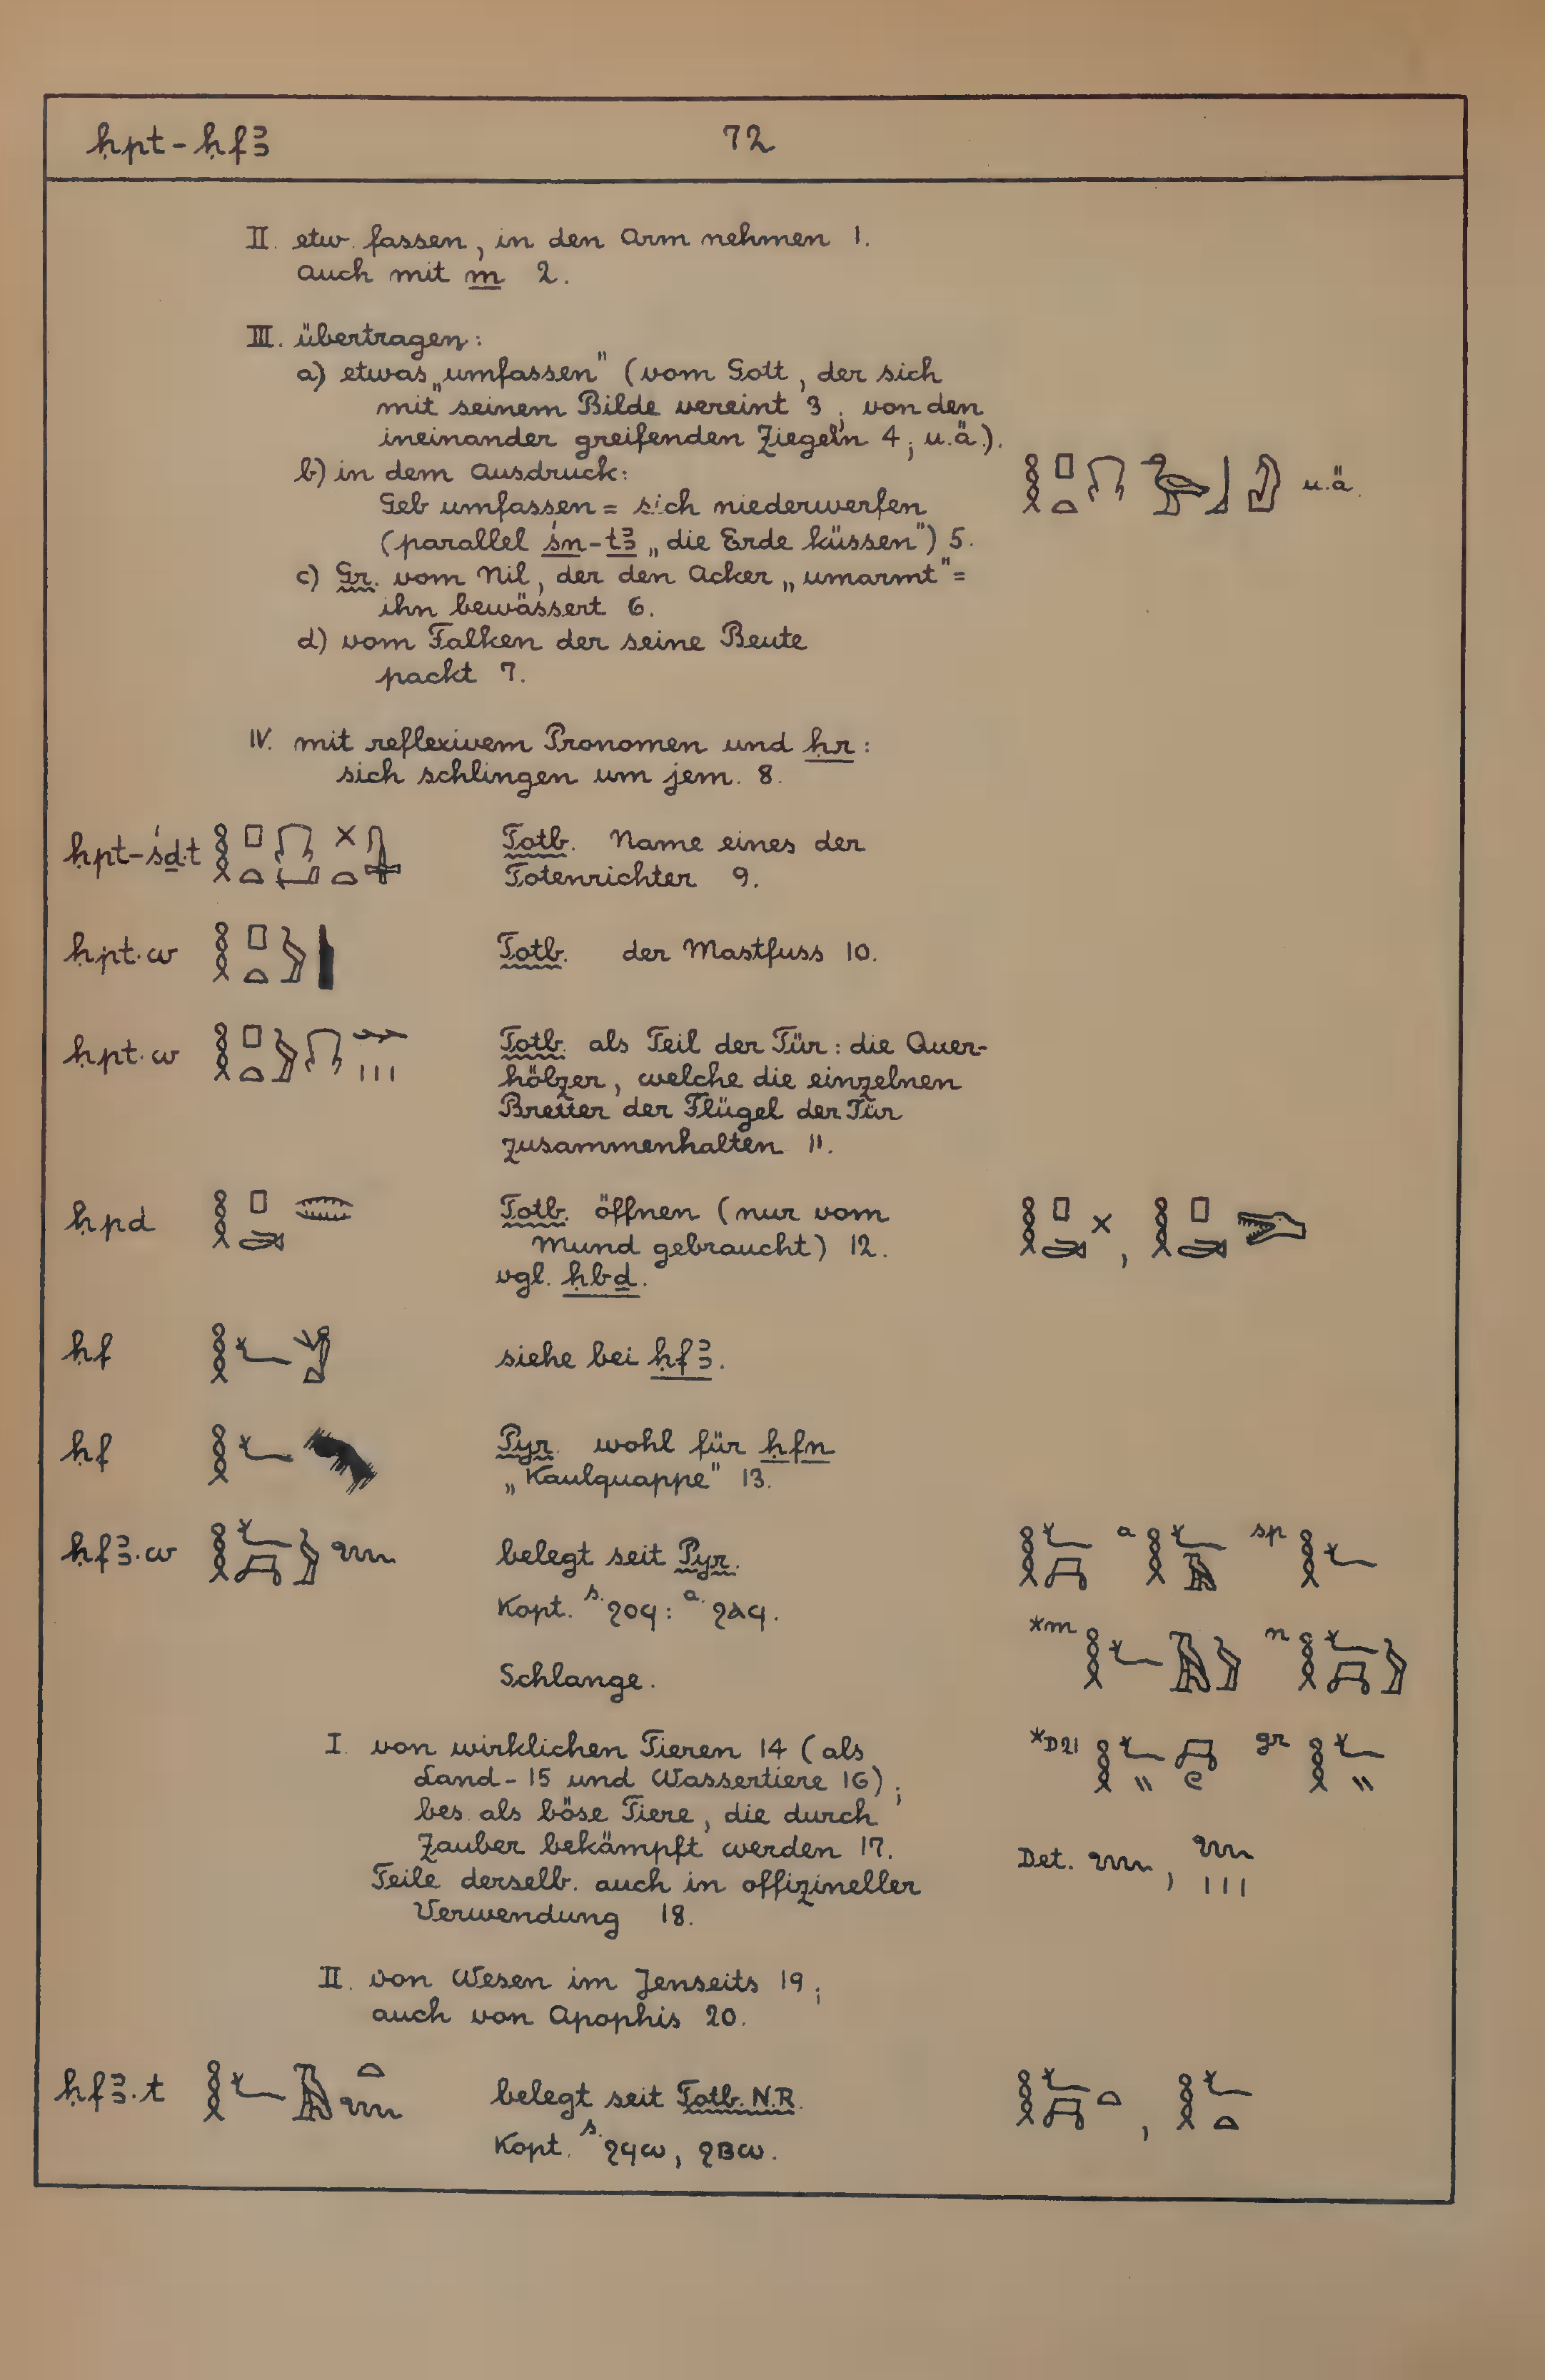 ḥpt - ḥfꜣ
72
II. etw. fassen, in den Arm nehmen 1.
auch mit m 2.
III. übertragen:
a) etwas „umfassen" (vom Gott, der sich
mit seinem Bilde vereint 3; von den
ineinander greifenden Ziegeln 4; u.ä.).
b) in dem Ausdruck:
Geb umfassen = sich niederwerfen
u.ä.
(parallel śn-tꜣ „die Erde küssen") 5.
c) Gr. vom Nil, der den Acker „umarmt" =
ihn bewässert 6.
d) vom Falken der seine Beute
packt 7.
IV. mit reflexivem Pronomen und ḥr:
sich schlingen um jem. 8.
ḥpt-śḏ.t Totb. Name eines der
Totenrichter 9.
ḥpt.w Totb. der Mastfuss 10.
ḥpt.w Totb. als Teil der Tür: die Quer-
hölzer, welche die einzelnen
Bretter der Flügel der Tür
zusammenhalten 11.
ḥpd Totb. öffnen (nur vom
Mund gebraucht) 12.
vgl. ḥbḏ.
ḥf siehe bei ḥfꜣ.
ḥf Pyr. wohl für ḥfn
„Kaulquappe" 13.
ḥfꜣ.w belegt seit Pyr. a sp
Kopt. s. ϩⲟϥ : a. ϩⲁϥ.
*m n
Schlange.
I. von wirklichen Tieren 14 (als
*D21 gr
Land- 15 und Wassertiere 16);
bes. als böse Tiere, die durch
Zauber bekämpft werden 17.
Det. ,
Teile derselb. auch in offizineller
Verwendung 18.
II. von Wesen im Jenseits 19;
auch von Apophis 20.
ḥfꜣ.t belegt seit Totb. N.R. ,
Kopt. s. ϩϥⲱ, ϩⲃⲱ.